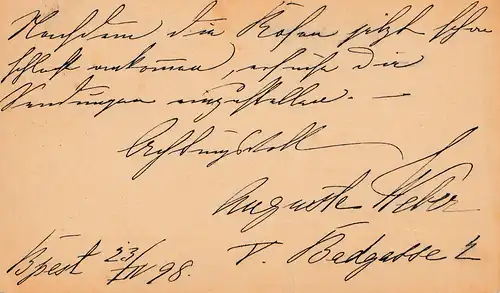 Nachdem die Rosen jetzt schon
schlecht ankommen, ersuche die
Sendungen einzustellen. —
Achtungsvoll
Auguste Weber
Bpest 23/IV 98. V. Badgasse 2